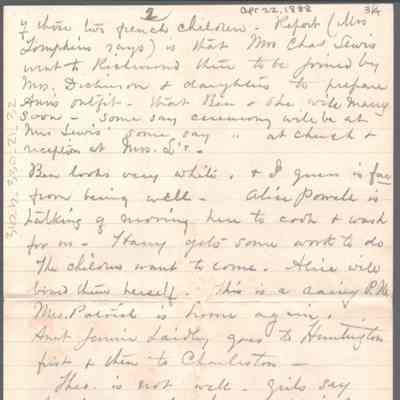 2
Apr 22, 1888
3/4
of those two french children. Report (Mrs
Tompkins says) is that Mrs Chas. Lewis
went to Richmond there to be joined by
Mrs. Dickinson & daughters to prepare
Ann's outfit - that Ben & she will marry
soon - some say ceremony will be at
Mrs Lewis' some say " at church &
reception at Mrs. L's. -
Ben looks very white. & I guess is far
from being well - Alice Powell is
talking of moving here to cook & wash
for us - Harry gets some work to do
The children want to come. Alice will
board them herself. This is a rainy P.M.
Mrs. Patrick is home again.
Aunt Jennie Laidley goes to Huntington
first & then to Charleston -
Theo. is not well - girls say